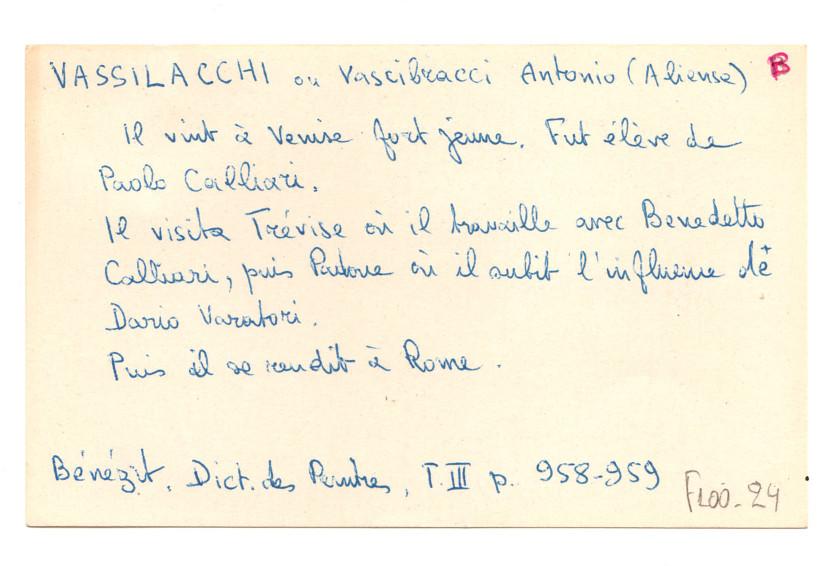 VASSILACCHI ou Vascibracci Antonio (Aliense) B
Il vint à Venise fort jeune. Fut élève de
Paolo Calliari.
Il visita Trévise où il travaille avec Benedetto
Calliari, puis Padoue où il subit l'influence de
Dario Varatori.
Puis il se rendit à Rome.
Bénézit, Dict. des Peintres, T. III p. 958-959
F100-24